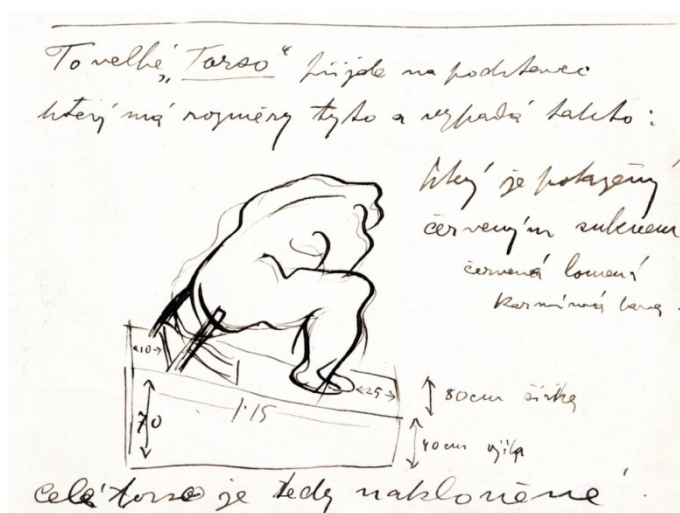 To velké „Torso“ přijde na podstavec
který má rozměry tyto a vypadá takto:
který je potažený
červeným suknem
červená lomená
karmínová barva.
10
25
80 cm šířka
70
1·15
40 cm výška
celé torso je tedy nakloněné.